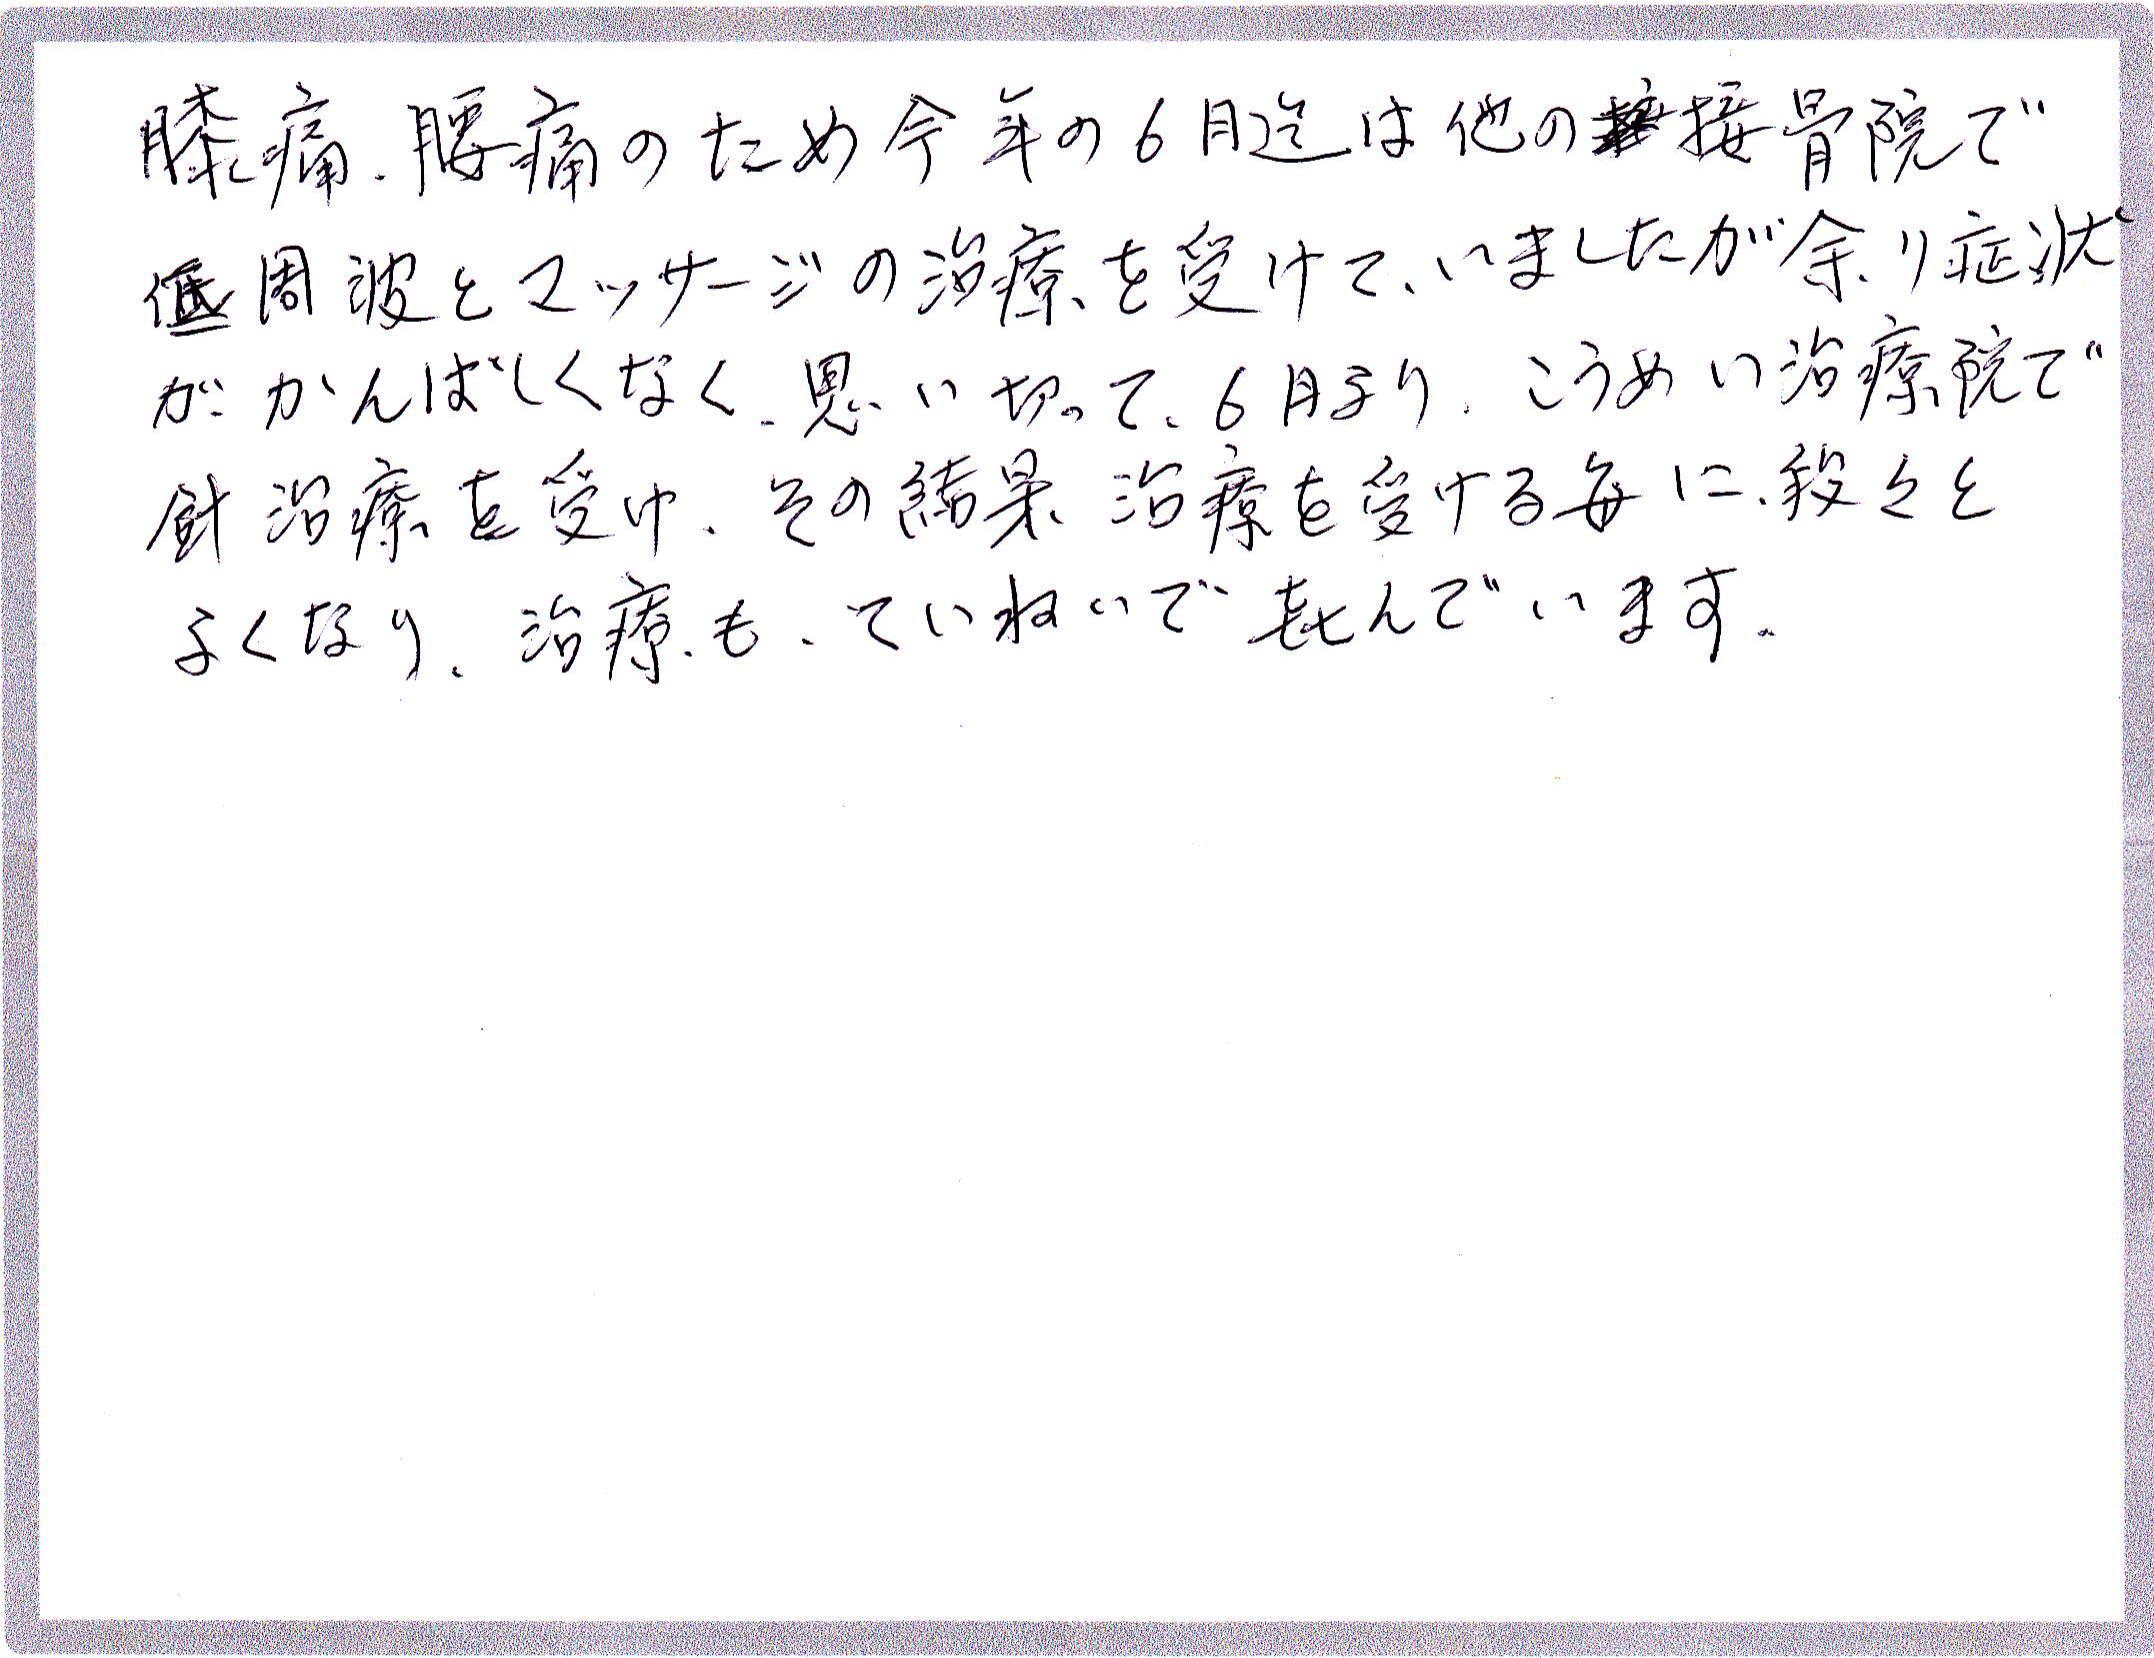 膝痛、腰痛のため今年の6月迄は他の接骨院で
低周波とマッサージの治療を受けて、いましたが余り症状
がかんばしくなく、思い切って、6月より、こうめい治療院で
針治療を受け、その結果、治療を受ける毎に、段々と
よくなり、治療も、ていねいで㐂んでいます。